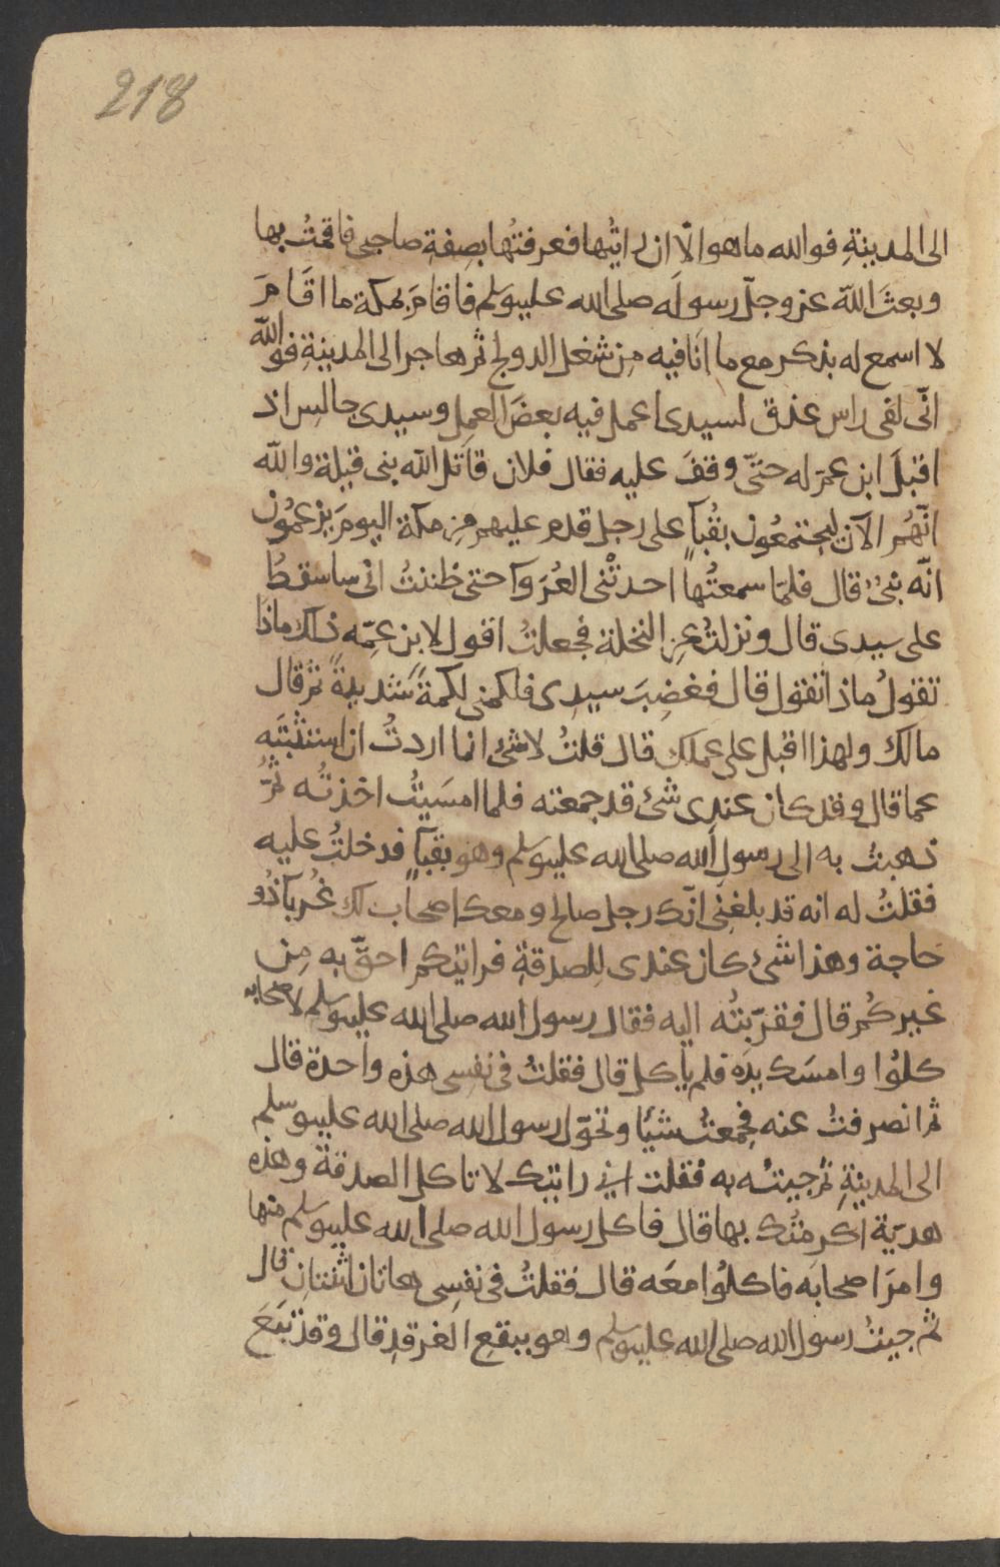 218
الى المدينةِ فوالله ما هو الّا ان رايتُها فعرفتُها بصِفةِ صاحبى فاقمتُ بها
وبعثَ اللّه عز وجلّ رسولَه صلى الله عليه وسلم فاقامَ بمكة ما اقَامَ
لا اسمع له بذكر مع ما انَا فيه مِن شغل الدولج ثم هاجر الى المدينةِ فواللّه
انّى لفى راس عذق لسيدى اعمل فيه بعضَ العمِل وسيدى جالس اذ
اقبلَ ابن عمّ له حتّى وقفَ عليه فقال فلان قاتَل اللّه بنى قيلة واللّه
انّهُم الآن ليجتمعُون بقُبآءٍ على رجل قدم عليهم مِن مكة اليومَ يزعمُون
انّه نبىّ قال فلمّا سمعتُها احدثْنى العُرَوآء حتى ظننتُ انى ساسقطُ
على سيدى قال ونزلتُ عنِ النخلة فجعلتُ اقول لابن عمِّه ذلك ماذا
تقولُ ماذا تقول قال فغضِبَ سيدى فلكمنى لكمةً شديدةً ثم قال
مالك ولهذا اقبل على عملك قال قلتُ لا شئ انما اردتُ ان استثبتَه
عما قال وقد كان عندِى شئ قد جمعته فلما امسَيتُ اخذتُه ثمّ
ذهبتُ به الى رسولِ اللّه صلى الله عليه وسلم وهو بقبآءٍ فدخلتُ عليه
فقلتُ له انه قد بلغنِى انّك رجل صالح ومعك اصحاب لك غُربآءُ ذُوُو
حاجة وهذا شئ كان عندى لِلصدقةِ فرايتكم احقَّ به مِن
غيركُم قال فقرّبتُه اليه فقال رسول الله صلى الله عليه وسلم لاصحابه
كلوُا وامسَك يدَه فلم ياكل قال فقلتُ فى نفسِى هذه واحدة قال
ثم انصرفتُ عنه فجمعتُ شيئا وتحوّل رسول الله صلى الله عليه وسلم
الى المدينةِ ثم جيتُه به فقلت انى رايتك لا تاكل الصدقة وهذه
هديّة اكرمتُك بها قال فاكل رسول الله صلى الله عليه وسلم منها
وامرَ اصحابَه فاكلوُا معَه قال فقلتُ فى نفسِى هاتان اثنتان قال
ثم جيتُ رسول الله صلى الله عليه وسلم وهو ببقيع الغرقدِ قال وقد تبَعَ